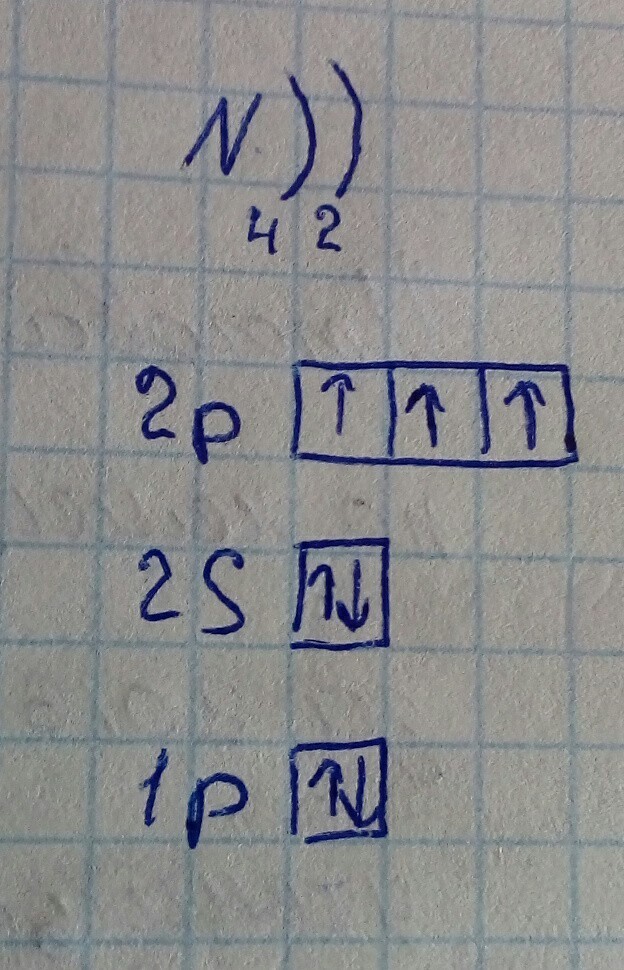 N))
4 2
2p ↑ ↑ ↑
2S ↑↓
1p ↑↓